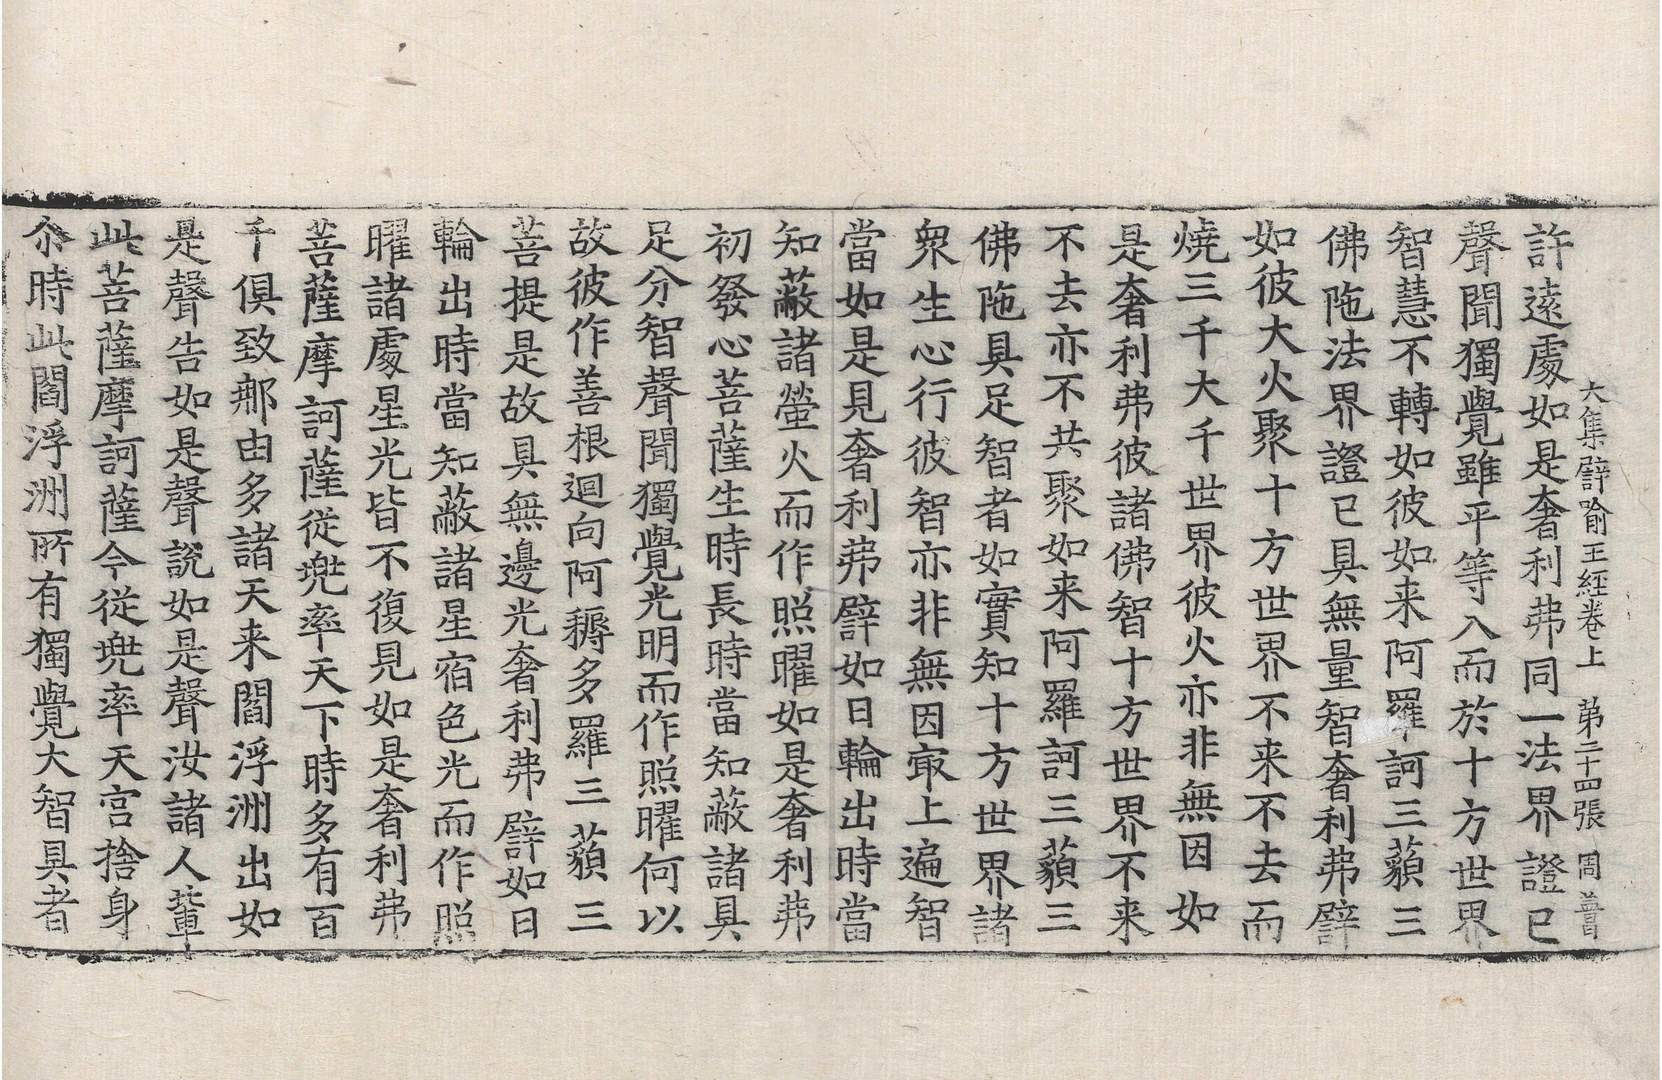 大集譬喻王經卷上 第二十四張 周普
許遠處如是奢利弗同一法界證已
聲聞獨覺雖平等入而於十方世界
智慧不轉如彼如来阿羅訶三藐三
佛陁法界證已具無量智奢利弗譬
如彼大火聚十方世界不来不去而
燒三千大千世界彼火亦非無因如
是奢利弗彼諸佛智十方世界不来
不去亦不共聚如来阿羅訶三藐三
佛陁具足智者如實知十方世界諸
衆生心行彼智亦非無因㝡上遍智
當如是見奢利弗譬如日輪出時當
知蔽諸螢火而作照曜如是奢利弗
初發心菩薩生時長時當知蔽諸具
足分智聲聞獨覺光明而作照曜何以
故彼作善根迴向阿耨多羅三藐三
菩提是故具無邊光奢利弗譬如日
輪出時當知蔽諸星宿色光而作照
曜諸處星光皆不復見如是奢利弗
菩薩摩訶薩從兠率天下時多有百
千俱致那由多諸天来閻浮洲出如
是聲告如是聲說如是聲汝諸人軰
此菩薩摩訶薩今從兠率天宫捨身
尒時此閻浮洲所有獨覺大智具者